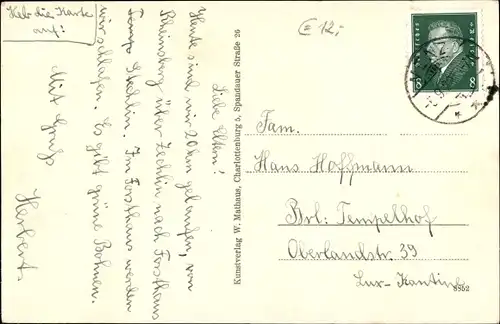 Heb die Karte
auf!
€ 12,-
Liebe Eltern!
Heute sind wir 20 km gelaufen, von
Rheinsberg über Zechlin nach Forsthaus
Stechlin. Im Forsthaus werden
wir schlafen. Es gibt grüne Bohnen.
Mit Gruß
Herbert.
Kunstverlag W. Mathaus, Charlottenburg 5, Spandauer Straße 26
8 8
Fam.
Hans Hoffmann
Brl: Tempelhof
Oberlandstr. 39
Lux-Kantine
8852